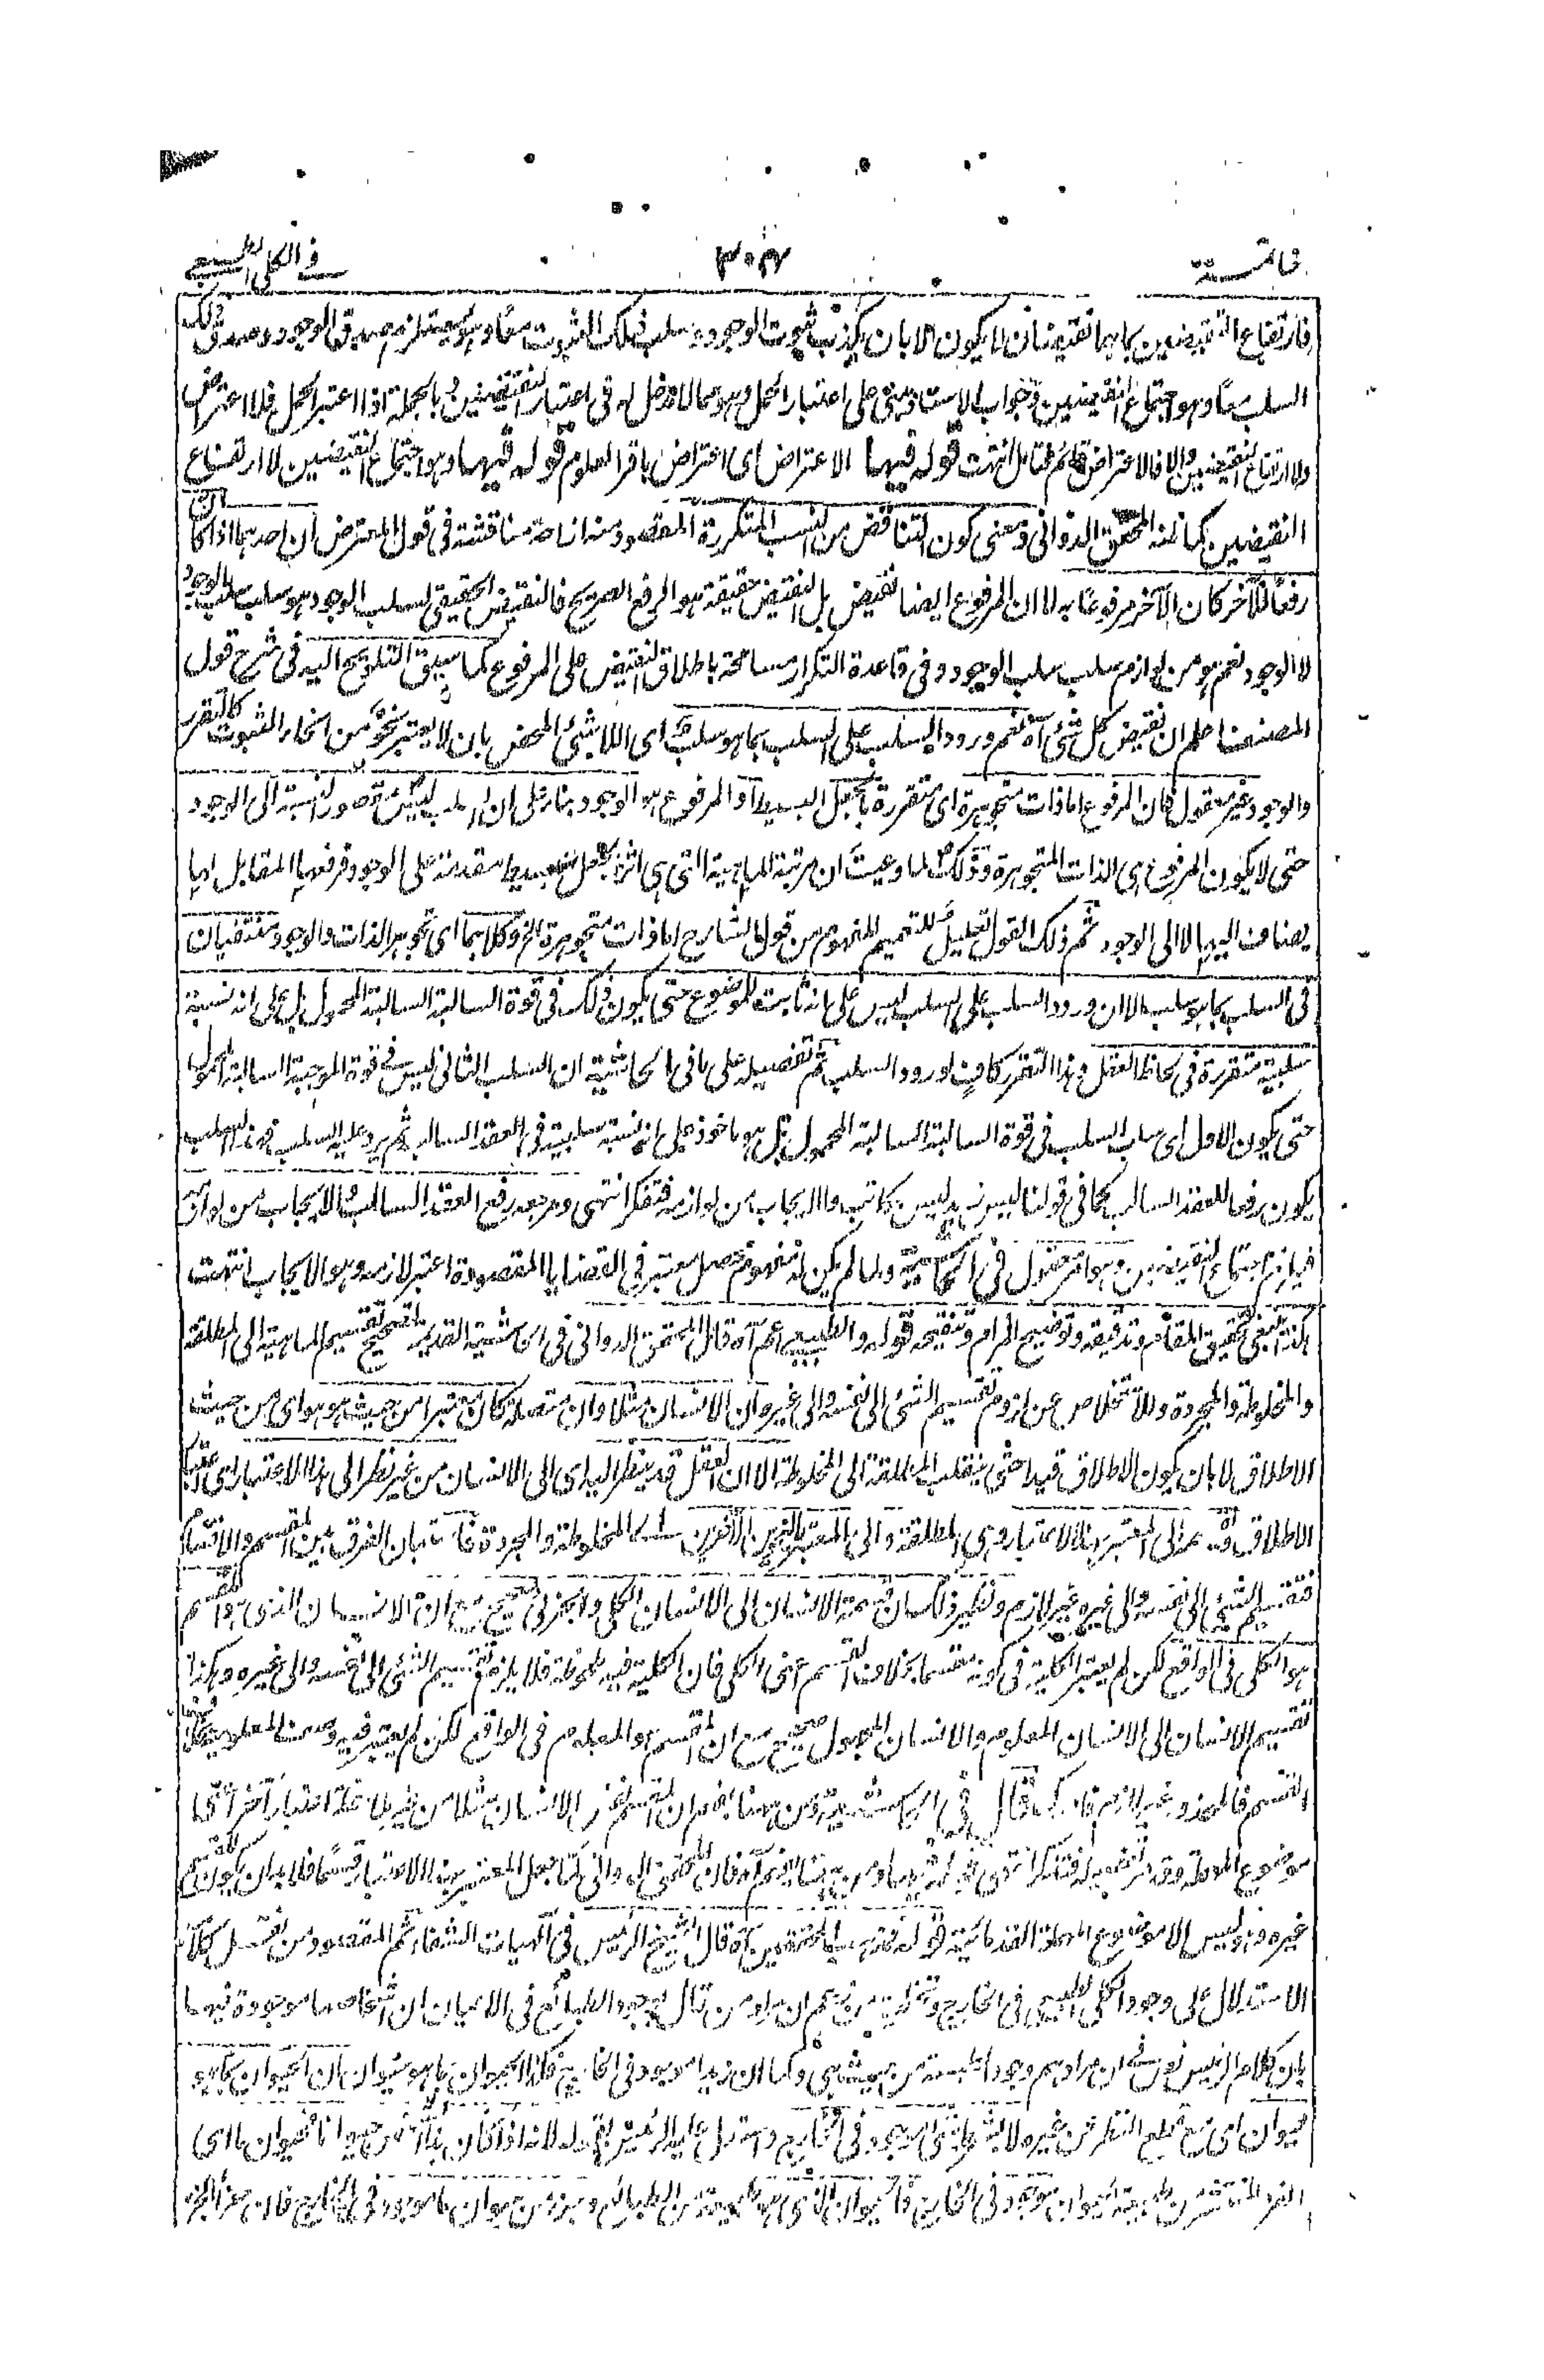 خاتمة ٣٠٤ في الكلي الطبيعي
فارتفاع النقيضين بما هما نقيضان لا يكون الا بان يكذب ثبوت الوجود وسلب ذلك الثبوت معًا وهو يستلزم صدق الوجود وصدق ذلك
السلب معًا وهو اجتماع النقيضين وجواب الاستاذ مبني على اعتبار الحمل وهو مما لا دخل له في اعتبار النقيضين وبالجملة اذا اعتبر الحمل فلا اعتراض
ولا ارتفاع النقيضين والا فالاعتراض قائم فتامل انتهت قوله فيها الاعتراض اى اعتراض باقر العلوم قوله فيهما وهو اجتماع النقيضين لا ارتفاع
النقيضين كما ظنه المحقق الدواني ومعنى كون التناقض من النسب المتكررة المقصود منه ازاحة مناقشة في قول المعترض ان احدهما اذا كان
رفعًا للآخر كان الآخر مرفوعًا به لا ان المرفوع ايضا نقيض بل النقيض حقيقة هو الرفع الصريح فالنقيض الحقيقي لسلب الوجود هو سلب سلب الوجود
لا الوجود نعم هو من لوازم سلب سلب الوجود وفي قاعدة التكرار مسامحة باطلاق النقيض على المرفوع كما سبق التلويح اليه في شرح قول
المصنف اعلم ان نقيض كل شئ آه نعم ورود السلب على السلب بما هو سلب اى اللاشئ المحض بان لا يعتبر نحو من انحاء الثبوت كالتقرر
والوجود غير معقول فان المرفوع اما ذات متجوهرة اى متقررة بالجعل البسيط او المرفوع هو الوجود بناء على ان السلب ليس يتصور لنسبة الى الوجود
حتى لا يكون المرفوع اى الذات المتجوهرة وذلك لما وعيت ان مرتبة الماهية التي هي اثر الجعل البسيط متقدمة على الوجود فرفعها المقابل لها
يضاف اليها لا الى الوجود ثم ذلك القول تعليل للتعميم المفهوم من قول الشارح اما ذات متجوهرة الخ وكلاهما اى تجوهر الذات والوجود منتفيان
في السلب بما هو سلب الا ان ورود السلب على السلب ليس على انه ثابت للموضوع حتى يكون ذلك في قوة السالبة السالبة المحمول بل على انه نسبة
سلبية متقررة في لحاظ العقل وهذا التقرر كاف لورود السلب ثم تفصيله على ما في الحاشية ان السلب الثاني ليس في قوة الموجبة السالبة المحمول
حتى يكون الاول اى سلب السلب في قوة السالبة السالبة المحمول بل هو ماخوذ على انه نسبة سلبية في العقد السالب ثم يرد عليه السلب فهذا السلب
يكون رفعا للعقد السالب كما في قولنا ليس زيد ليس بكاتب والايجاب من لوازمه فتفكر انتهى ومرجعه رفع العقد السالب والايجاب من لوازمه
فيلزم اجتماع النقيضين وهو امر معقول في الحاشية ولما لم يكن له مفهوم محصل معتبر في القضايا المقصودة اعتبر لازمه وهو الايجاب انتهت
هكذا ينبغي تحقيق المقام وتدقيقه وتوضيح المرام وتنقيحه قوله والطبيعي اعم آه قال المحقق الدواني في الحاشية القديمة لتصحيح تقسيم الماهية الى المطلقة
والمخلوطة والمجردة وللتخلص عن لزوم تقسيم الشئ الى نفسه والى غيره ان الانسان مثلا وان كان معتبرا من حيث هو هو اى من حيث
الاطلاق لا بان يكون الاطلاق قيدا حتى ينقلب المطلقة الى المخلوطة الا ان العقل قد ينظر اليه اى الى الانسان من غير نظر الى هذا الاعتبار اى اعتبار
الاطلاق الى المعتبر بهذا الاعتبار وهي المطلقة والى المعتبر بالنحوين الآخرين اى المخلوطة والمجردة فاستبان الفرق بين المقسم والاقسام
فتقسيم الشئ الى نفسه والى غيره غير لازم ونظير ذلك ان قسمة الانسان الى الانسان الكلي والجزئي صحيح مع ان الانسان الذي هو المقسم
هو الكلي في الواقع لكن لم يعتبر الكلية في كونه مقسما بخلاف القسم اعني الكلي فان الكلية فيه ملحوظة فلا يلزم تقسيم الشئ الى نفسه والى غيره وهكذا
تقسيم الانسان الى الانسان المعلوم والانسان المجهول صحيح مع ان المقسم هو المعلوم في الواقع لكن لم يعتبر فيه وصف المعلومية بخلاف
القسم فالمحذور غير لازم قال في الحاشية ومن ههنا يظهر ان المقسم نفس الانسان مثلا من غير ملاحظة اعتبار آخر
موضوع المهملة وقد مر تفصيله فتذكر انتهى
غيره وليس الا موضوع المهملة القدمائية قوله فذهب المحققين آه قال الشيخ الرئيس في آلهيات الشفاء ثم المقصود من نقل كلام
الاستدلال على وجود الكلي الطبيعي في الخارج وتخطئة من زعم ان مراد من قال بوجود الطبائع في الاعيان ان اشخاصها موجودة فيها
بان كلام الرئيس نص في ان مرادهم وجود الطبيعة من حيث هي وكما ان زيدا موجود في الخارج فكذا الحيوان بما هو حيوان ان الحيوان بما هو
حيوان اى مع قطع النظر عن غيره لا بشرط شئ موجود في الخارج واستدل عليه الرئيس بقوله لانه اذا كان هذا الشخص حيوانا فحيوان ما اى
الفرد المنتشر من طبيعة الحيوان موجود في الخارج فالحيوان الذي هو طبيعة من الطبائع وجزء من حيوان ما موجود في الخارج فان جزء الجزء